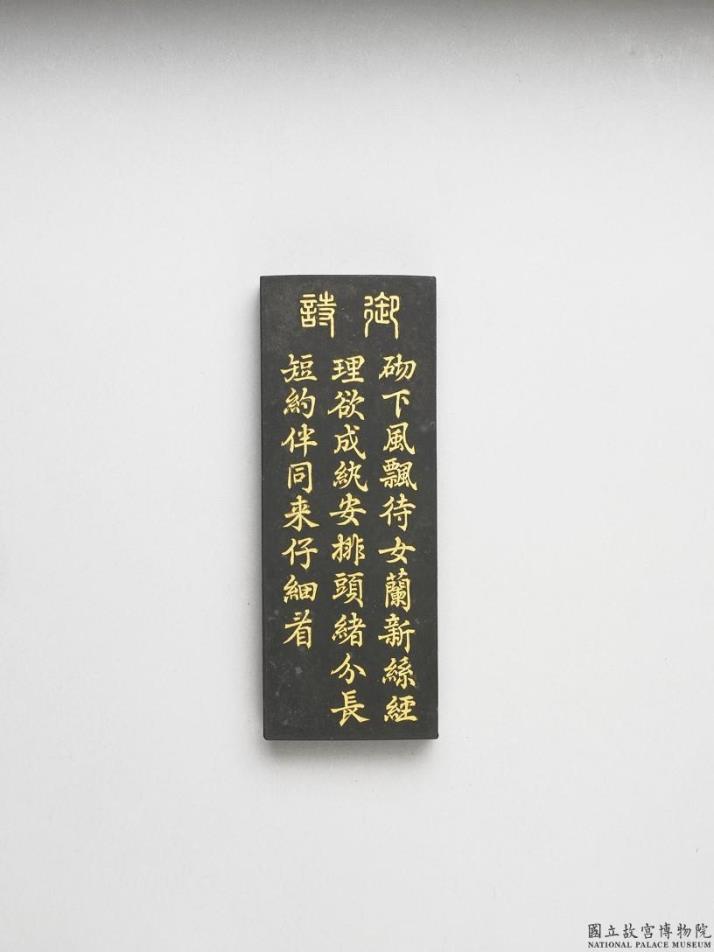 御詩
砌下風飄待女蘭新絲經
理欲成紈安排頭緒分長
短約伴同来仔細看
國立故宮博物院
NATIONAL PALACE MUSEUM